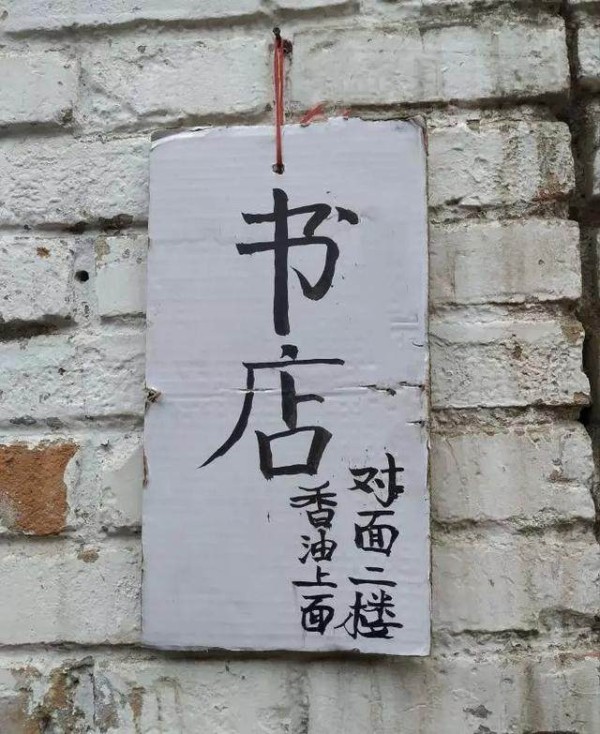 书店
对面二楼
香油上面